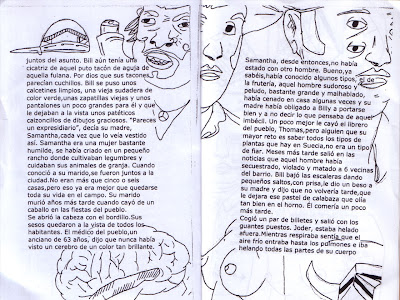 juntos del asunto. Bill aún tenía una
cicatriz de aquel puto tacón de aguja de
aquella fulana. Por dios que sus tacones
parecían cuchillos. Bill se puso unos
calcetines limpios, una vieja sudadera de
color verde,unas zapatillas viejas y unos
pantalones un poco grandes para él y que
le dejaban a la vista unos patéticos
calzoncillos de dibujos graciosos. "Pareces
un expresidiario", decía su madre,
Samantha,cada vez que lo veía vestido
así. Samantha era una mujer bastante
humilde, se había criado en un pequeño
rancho donde cultivaban legumbres y
cuidaban sus animales de granja. Cuando
conoció a su marido,se fueron juntos a la
ciudad.No eran más que cinco o seis
casas,pero eso ya era mejor que quedarse
toda su vida en el campo. Su marido
murió años más tarde cuando cayó de un
caballo en las fiestas del pueblo.
Se abrió la cabeza con el bordillo.Sus
sesos quedaron a la vista de todos los
habitantes. El médico del pueblo,un
anciano de 63 años, dijo que nunca había
visto un cerebro de un color tan brillante.
Samantha, desde entonces,no había
estado con otro hombre. Bueno,ya
sabéis,había conocido algunos tipos, el de
la frutería, aquel hombre sudoroso y
peludo, bastante grande y malhablado,
había cenado en casa algunas veces y su
madre había obligado a Billy a portarse
bien y a no decir lo que pensaba de aquel
imbécil. Un poco mejor le cayó el librero
del pueblo, Thomas,pero alguien que su
mayor reto es saber todos los tipos de
plantas que hay en Suecia,no era un tipo
de fiar. Meses más tarde salió en las
noticias que aquel hombre había
secuestrado, violado y matado a 6 vecinas
del barrio. Bill bajó las escaleras dando
pequeños saltos,con prisa,le dio un beso a
su madre y dijo que no volvería tarde,que
le dejara ese pastel de calabaza que olía
tan bien en el horno. Él comería un poco
más tarde.
Cogió un par de billetes y salió con los
guantes puestos. Joder, estaba helado
afuera.Mientras respiraba sentía que el
aire frío entraba hasta los pulmones e iba
helando todas las partes de su cuerpo